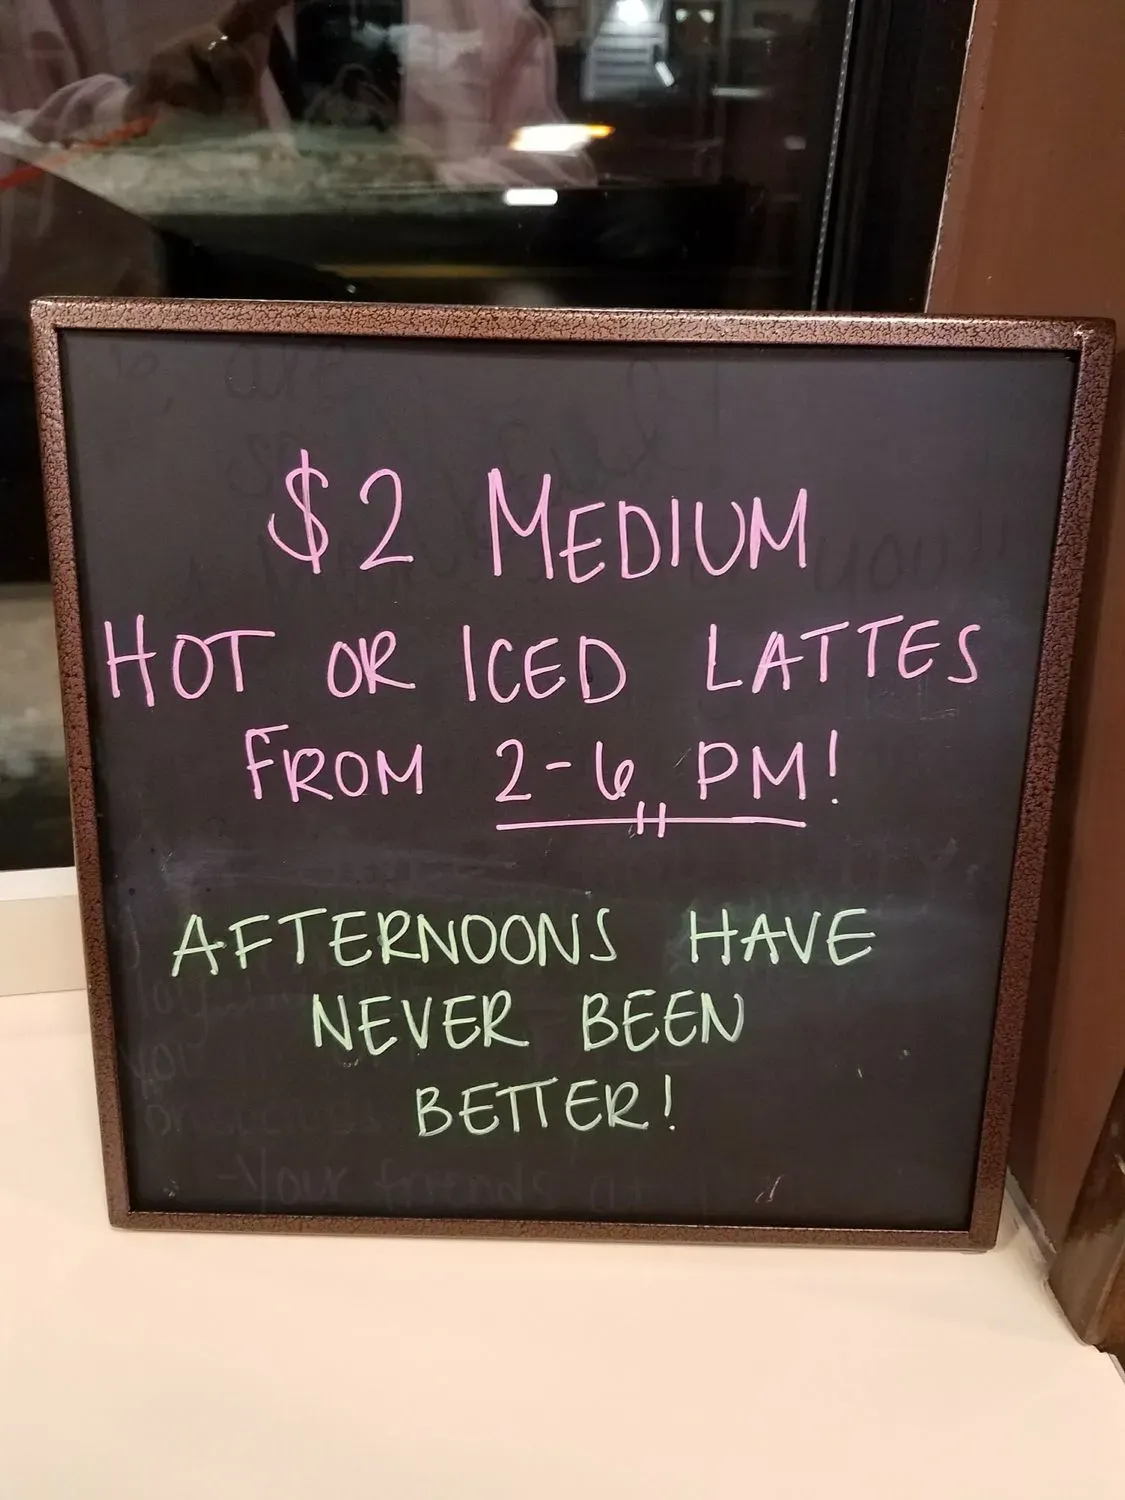 $2 MEDIUM
HOT OR ICED LATTES
FROM 2-6 PM!
AFTERNOONS HAVE
NEVER BEEN
BETTER!
-Your friends at